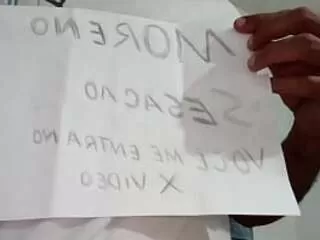 MORENO
SESACAO
VOCE ME ENTRA NO
X VIDEO